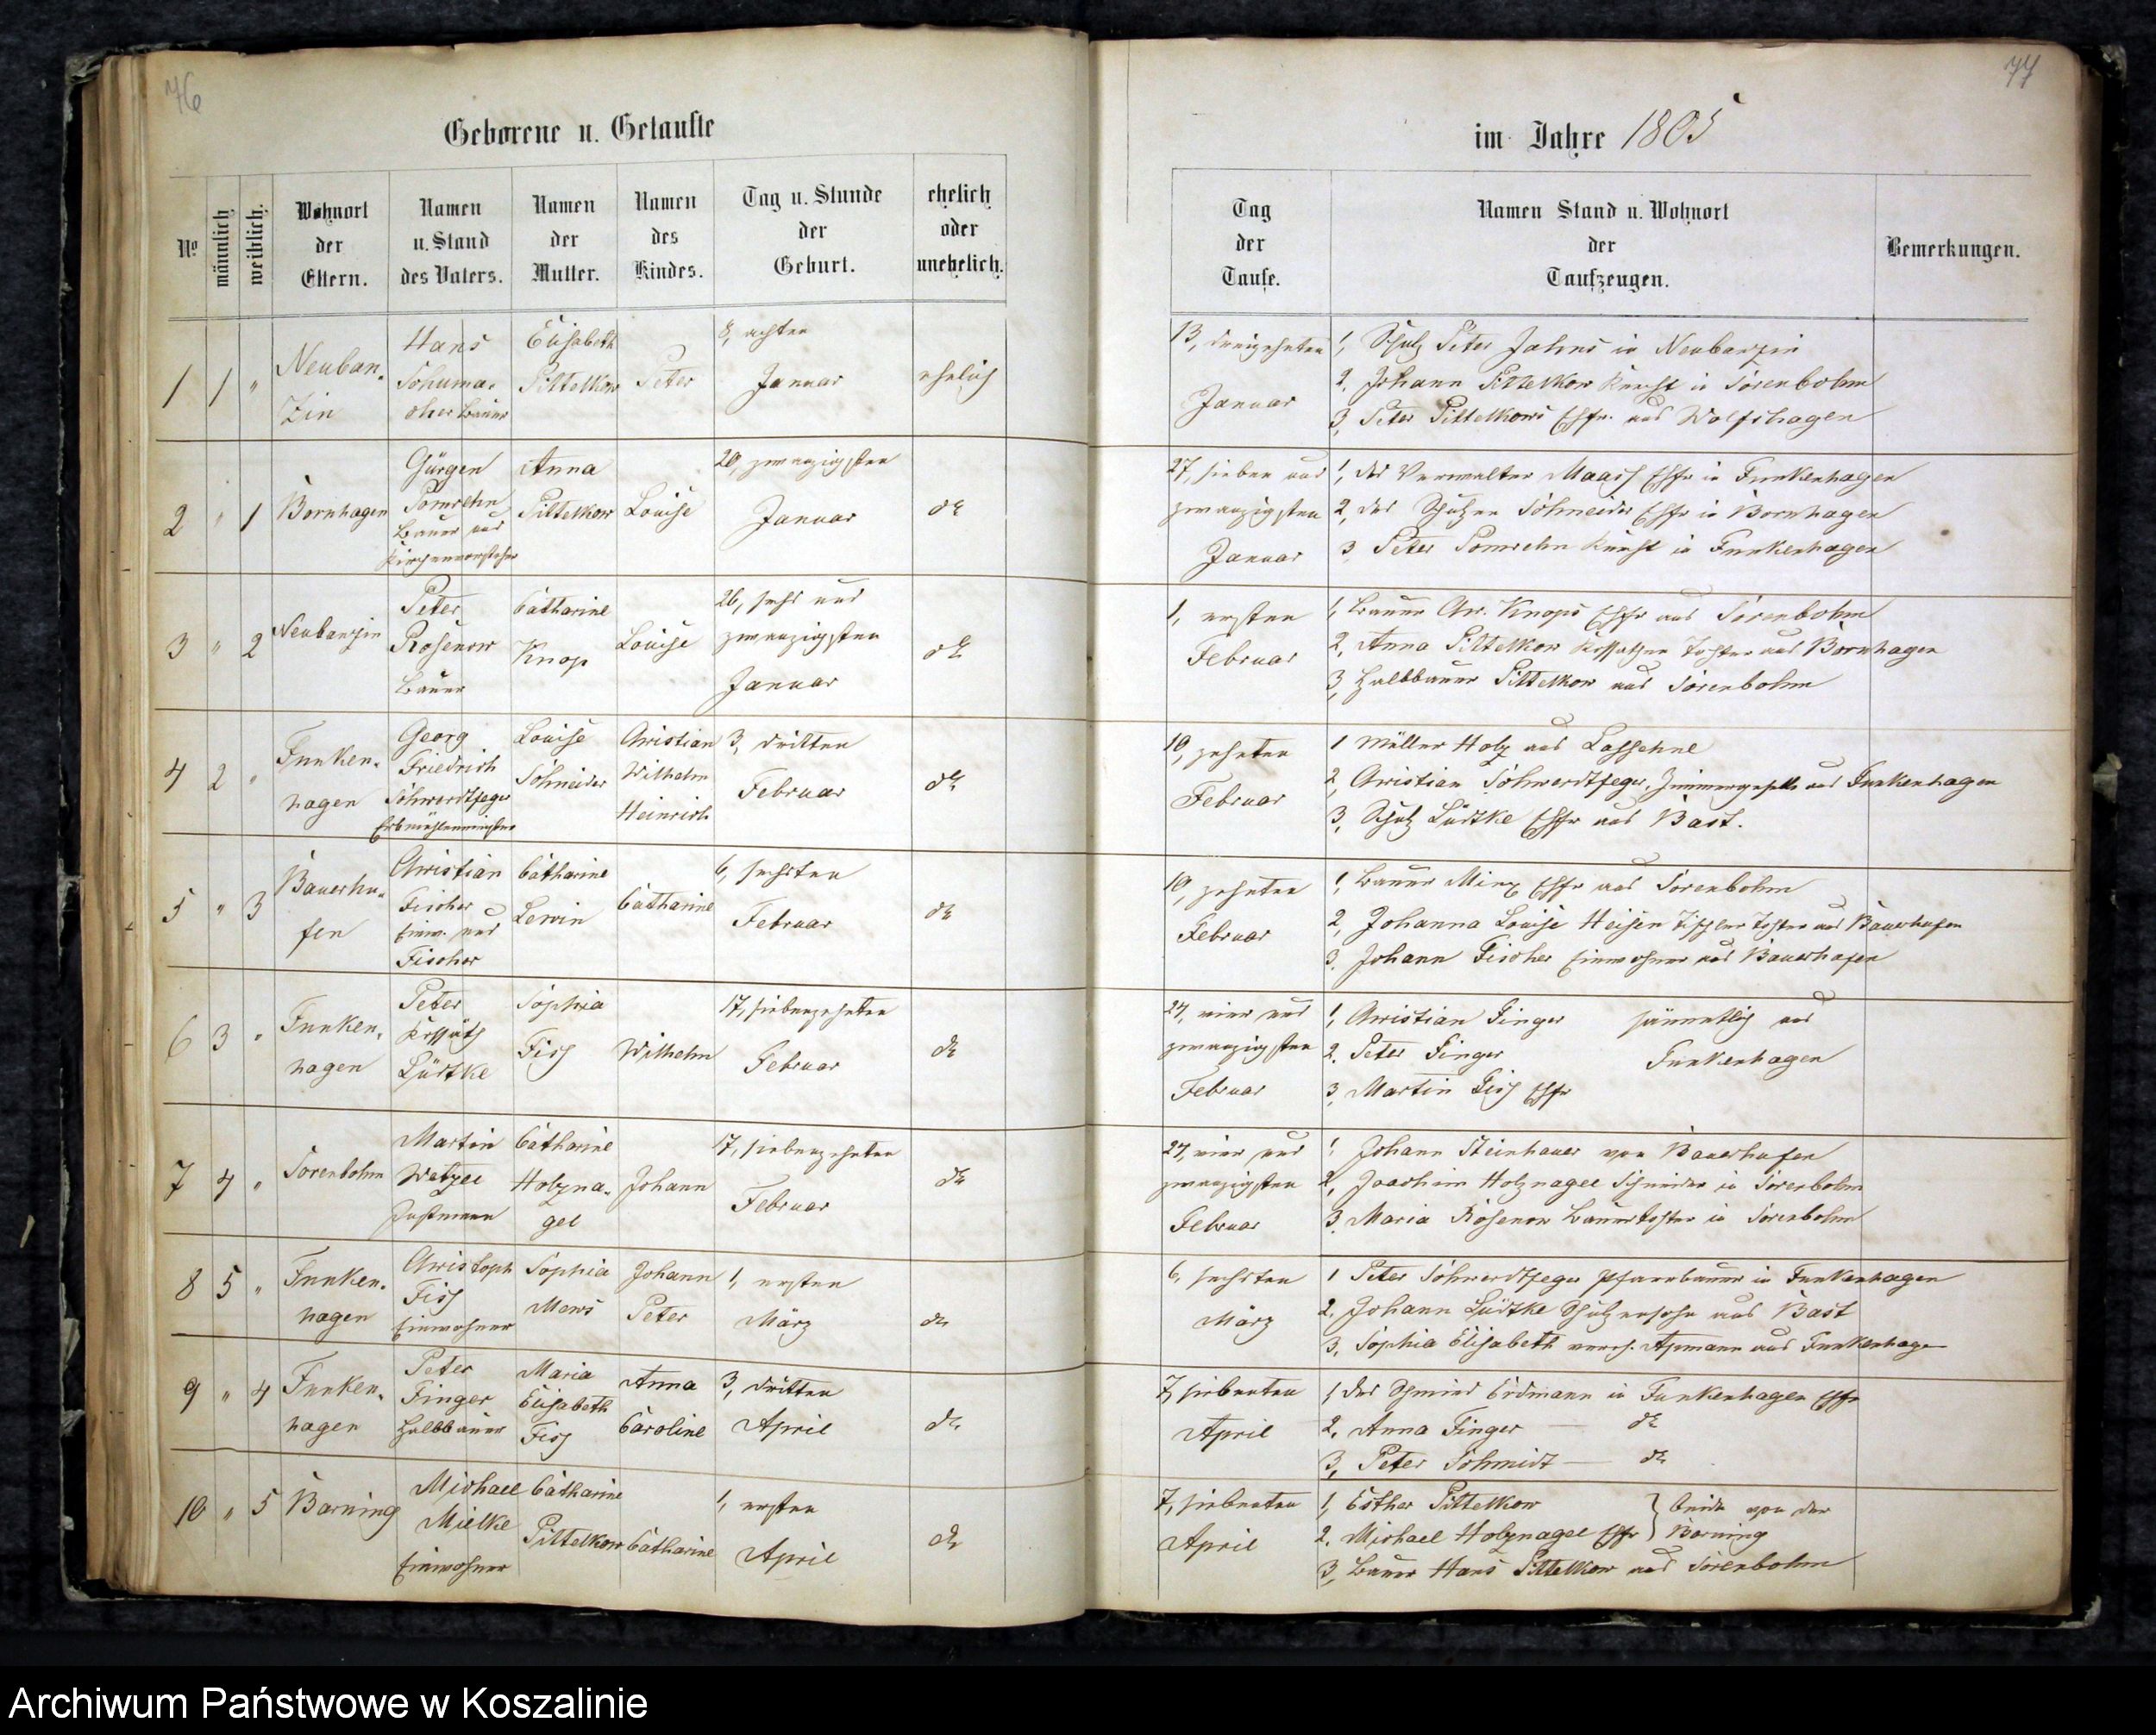 76
Geborene u. Getaufte
No
männlich
weiblich.
Wohnort
der
Eltern.
Namen
u. Stand
des Vaters.
Namen
der
Mutter.
Namen
des
Kindes.
Tag u. Stunde
der
Geburt.
ehelich
oder
unehelich.
1 1 "
Neuban-
zin
Hans
Schuma-
cher Bauer
Elisabeth
Pittelkow
Peter
8, achten
Januar
ehelich
2 " 1
Bornhagen
Gürgen
Pomrehn
Bauer und
Kirchenvorsteher
Anna
Pittelkow
Louise
20, zwanzigsten
Januar
do
3 " 2
Neubanzin
Peter
Rosenow
Bauer
Catharine
Knop
Louise
26, sechs und
zwanzigsten
Januar
do
4 2 "
Funken-
hagen
Georg
Friedrich
Schwerdtfeger
Erbmühlenmeister
Louise
Schneider
Christian
Wilhelm
Heinrich
3, dritten
Februar
do
5 " 3
Bauerhu-
fen
Christian
Fischer
Einw. und
Fischer
Catharine
Lewin
Catharine
6, sechsten
Februar
do
6 3 "
Funken-
hagen
Peter
Kossäth
Lüdtke
Sophia
Fiss
Wilhelm
17, siebenzehnten
Februar
do
7 4 "
Sorenbohm
Martin
Wetzel
Instmann
Catharine
Holzna-
gel
Johann
17, siebenzehnten
Februar
do
8 5 "
Funken-
hagen
Christoph
Fiss
Einwohner
Sophia
Mews
Johann
Peter
1, ersten
März
do
9 " 4
Funken-
hagen
Peter
Finger
Halbbauer
Maria
Elisabeth
Fiss
Anna
Caroline
3, dritten
April
do
10 " 5
Barning
Michael
Mielke
Einwohner
Catharine
Pittelkow
Catharine
1, ersten
April
do
77
im Jahre 1805
Tag
der
Taufe.
Namen Stand u. Wohnort
der
Taufzeugen.
Bemerkungen.
13, dreizehnten
Januar
1, Schulz Peter Jahns in Neubanzin
2, Johann Pittelkow Knecht in Sorenbohm
3, Peter Pittelkows Ehfr. aus Wolfshagen
27, sieben und
zwanzigsten
Januar
1, des Verwalter Maass Ehfr in Funkenhagen
2, des Schulzen Schneider Ehfr in Bornhagen
3 Peter Pomrehn Knecht in Funkenhagen
1, ersten
Februar
1, Bauer Chr. Knops Ehfr aus Sorenbohm
2, Anna Pittelkow Kossathen Tochter aus Bornhagen
3, Halbbauer Pittelkow aus Sorenbohm
10, zehnten
Februar
1 Müller Holz aus Lassehne
2, Christian Schwerdtfeger, Zimmergeselle aus Funkenhagen
3, Schulz Lüdtke Ehfr aus Bast.
10, zehnten
Februar
1, Bauer Minx Ehfr aus Sorenbohm
2, Johanna Louise Heisen Tischler Tochter aus Bauerhufen
3, Johann Fischer Einwohner aus Bauerhufen
24, vier und
zwanzigsten
Februar
1, Christian Finger sämmtlich aus
2. Peter Finger Funkenhagen
3, Martin Fiss Ehfr
24, vier und
zwanzigsten
Februar
1, Johann Steinhauer von Bauerhufen
2, Joachim Holznagel Schneider in Sorenbohm
3. Maria Rosenow Bauertochter in Sorenbohm
6, sechsten
März
1 Peter Schwerdtfeger Pfarrbauer in Funkenhagen
2. Johann Lüdtke Schulzensohn aus Bast
3, Sophia Elisabeth verch. Apmann aus Funkenhagen
7, siebenten
April
1 des Schmied Erdmann in Funkenhagen Ehfr
2. Anna Finger — do
3, Peter Schmidt — do
7, siebenten
April
1, Esther Pittelkow } beide von der
2. Michael Holznagel Ehfr } Barning
3, Bauer Hans Pittelkow aus Sorenbohm
Archiwum Państwowe w Koszalinie